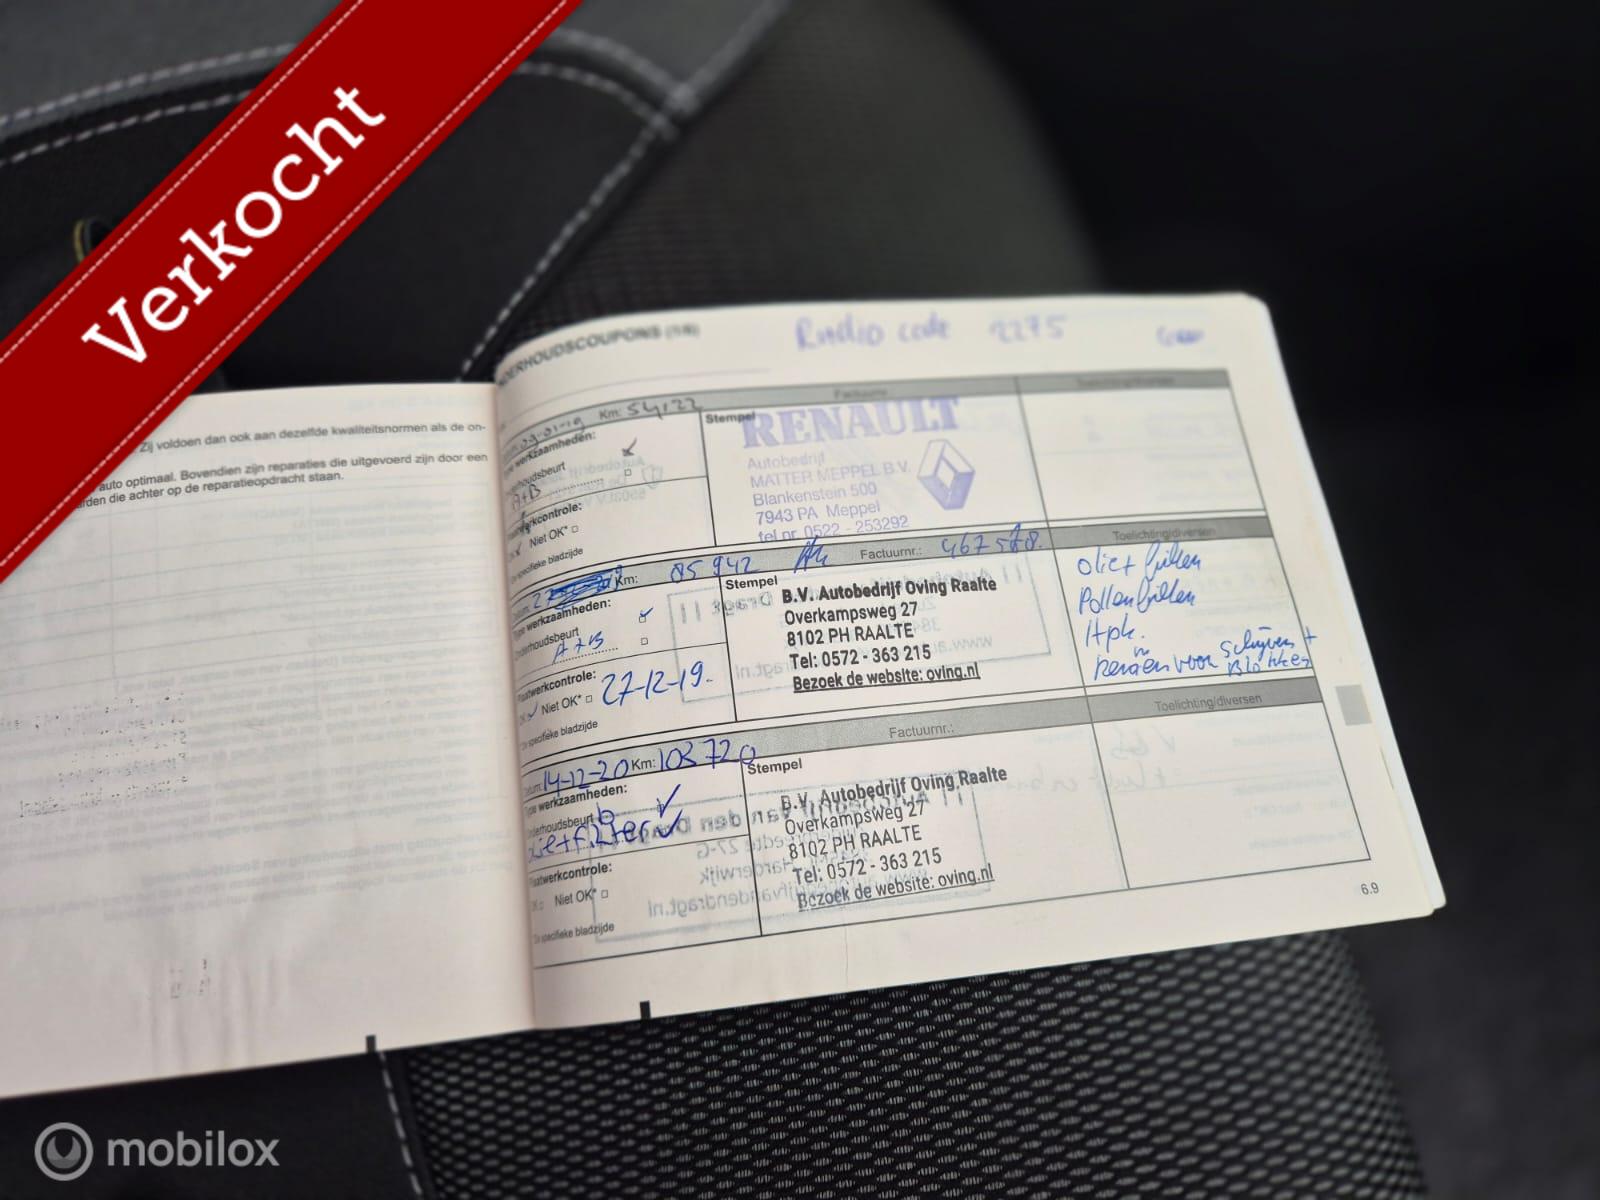 Verkocht
Zij voldoen dan ook aan dezelfde kwaliteitsnormen als de on-
auto optimaal. Bovendien zijn reparaties die uitgevoerd zijn door een
rden die achter op de reparatieopdracht staan.
DERHOUDSCOUPONS
Radio code 2275
Km: 54122
Factuurnr
Toelichting/diversen
09-01-19
werkzaamheden:
Onderhoudsbeurt
A+B
Niet OK*
specifieke bladzijde
Stempel
RENAULT
Autobedrijf
MATTER MEPPEL B.V.
Blankenstein 500
7943 PA Meppel
tel.nr. 0522 - 253292
Km: 85 942
Factuurnr.: 467578.
Toelichting/diversen
Type werkzaamheden:
Onderhoudsbeurt
A+B
Plaatwerkcontrole:
Niet OK*
27-12-19.
De specifieke bladzijde
Stempel
B.V. Autobedrijf Oving Raalte
Overkampsweg 27
8102 PH RAALTE
Tel: 0572 - 363 215
Bezoek de website: oving.nl
olie+filter
Pollenfilter
voor schijven +
Blokken
Datum: 14-12-20 Km: 103720
Factuurnr.:
Toelichting/diversen
Type werkzaamheden:
Onderhoudsbeurt
olie+Filter
Plaatwerkcontrole:
Niet OK*
De specifieke bladzijde
Stempel
B.V. Autobedrijf Oving Raalte
Overkampsweg 27
8102 PH RAALTE
Tel: 0572 - 363 215
Bezoek de website: oving.nl
6.9
mobilox